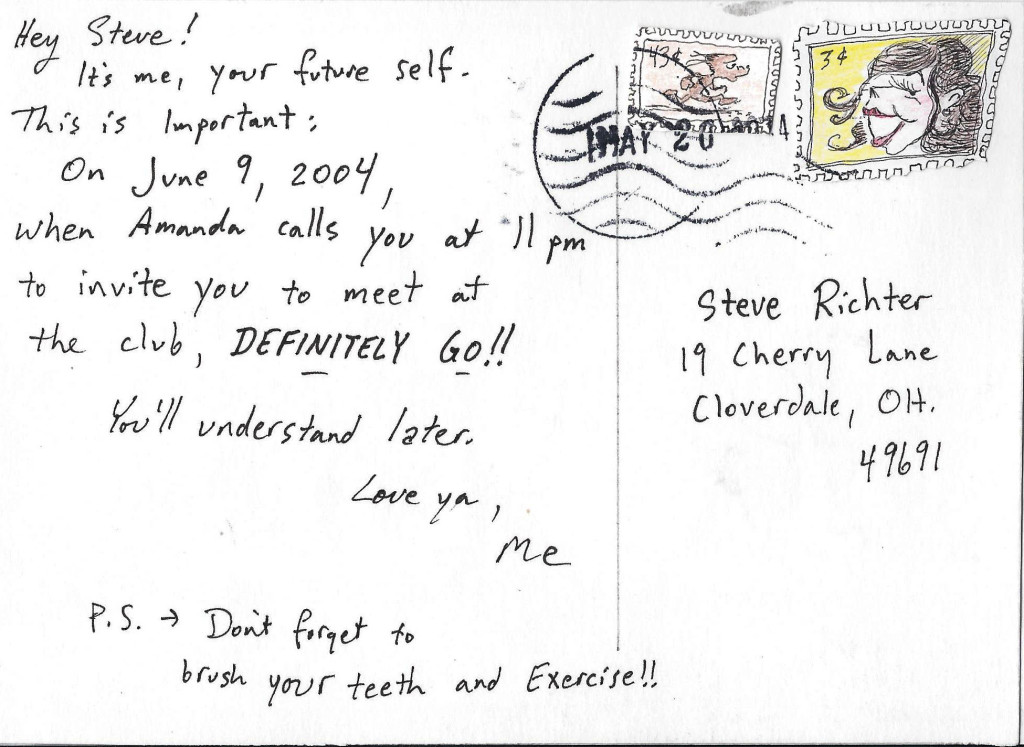 Hey Steve!
It's me, your future self.
This is Important:
On June 9, 2004,
when Amanda calls you at 11 pm
to invite you to meet at
the club, DEFINITELY GO!!
You'll understand later.
Love ya,
Me
P.S. → Don't forget to
brush your teeth and Exercise!!
43¢
3¢
MAY 20
Steve Richter
19 Cherry Lane
Cloverdale, OH.
49691